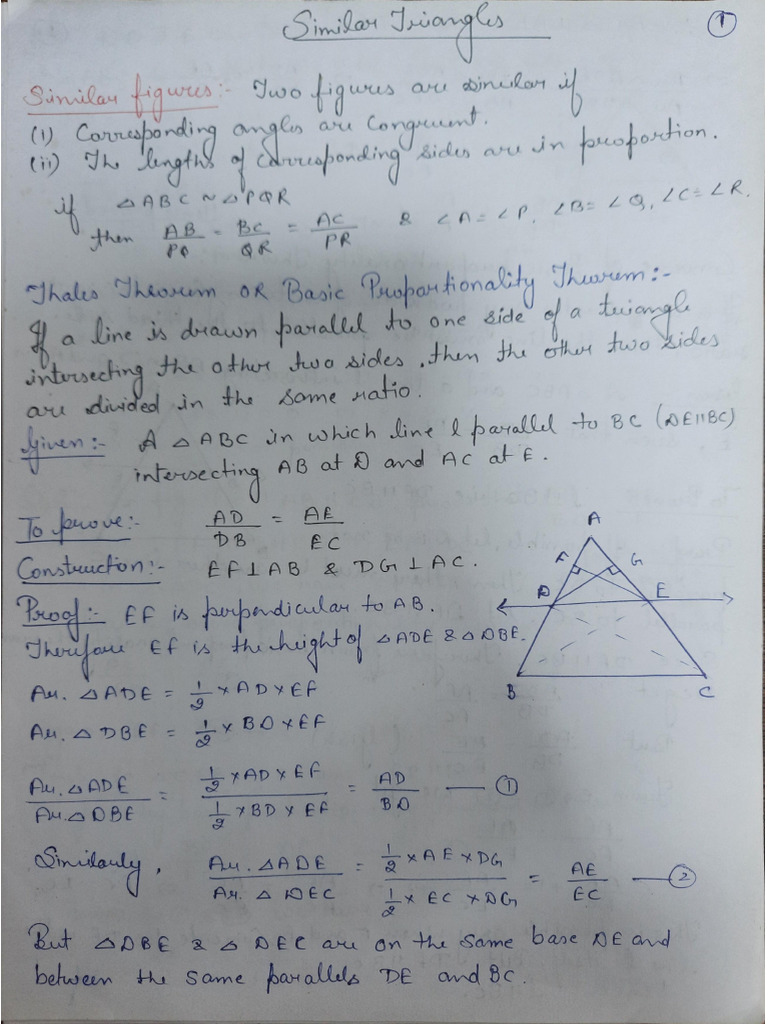 Similar Triangles
1
Similar figures:- Two figures are similar if
(i) Corresponding angles are Congruent.
(ii) The lengths of corresponding sides are in proportion.
if △ABC ~ △PQR
then AB/PQ = BC/QR = AC/PR & ∠A = ∠P, ∠B = ∠Q, ∠C = ∠R.
Thales Theorem OR Basic Proportionality Theorem:-
If a line is drawn parallel to one side of a triangle
intersecting the other two sides, then the other two sides
are divided in the same ratio.
Given:- A △ABC in which line l parallel to BC (DE||BC)
intersecting AB at D and AC at E.
To prove:- AD/DB = AE/EC
Construction:- EF⊥AB & DG⊥AC.
Proof:- EF is perpendicular to AB.
Therefore EF is the height of △ADE & △DBE.
Ar. △ADE = 1/2 × AD × EF
Ar. △DBE = 1/2 × BD × EF
Ar. △ADE / Ar. △DBE = 1/2 × AD × EF / 1/2 × BD × EF = AD/BD — ①
Similarly, Ar. △ADE / Ar. △DEC = 1/2 × AE × DG / 1/2 × EC × DG = AE/EC — ②
But △DBE & △DEC are on the same base DE and
between the same parallels DE and BC.
A
F
G
D
E
B
C